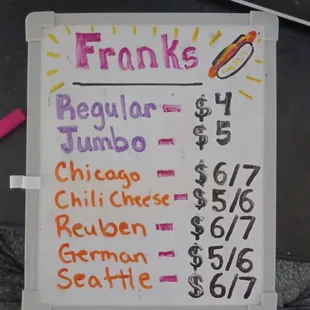 Franks
Regular - $4
Jumbo - $5
Chicago - $6/7
Chili Cheese - $5/6
Reuben - $6/7
German - $5/6
Seattle - $6/7